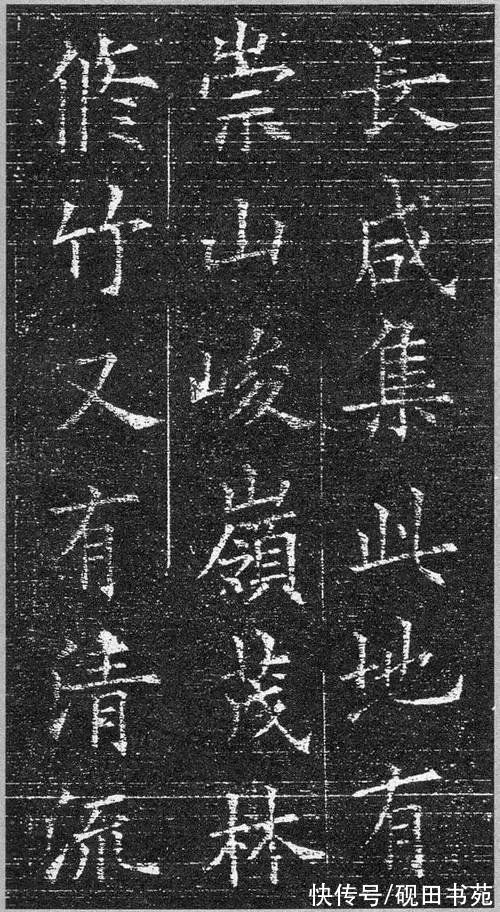 長咸集此地有
崇山峻嶺茂林
脩竹又有清流
快传号/砚田书苑